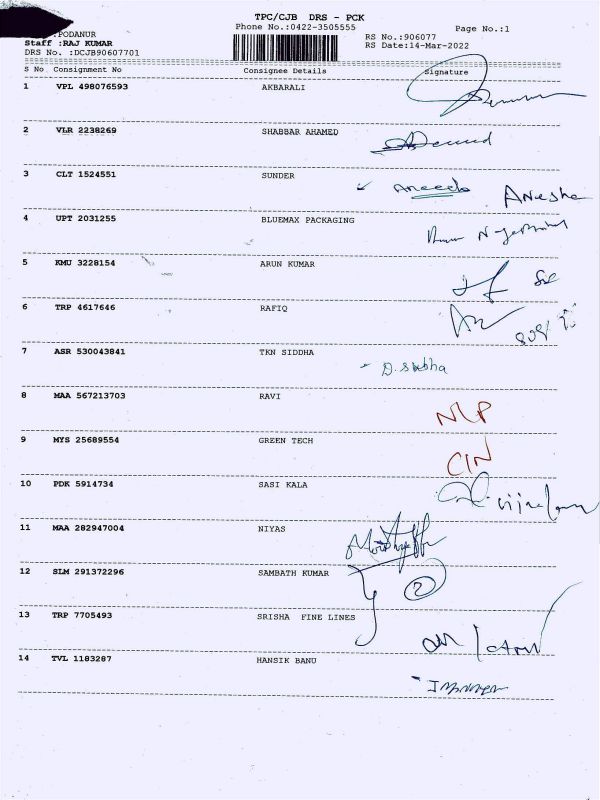 TPC/CJB DRS - PCK
Phone No.:0422-3505555 Page No.:1
:PODANUR RS No.:906077
Staff :RAJ KUMAR RS Date:14-Mar-2022
DRS No. :DCJB90607701
S No Consignment No Consignee Details Signature
1 VPL 498076593 AKBARALI
2 VLR 2238269 SHABBAR AHAMED
3 CLT 1524551 SUNDER
4 UPT 2031255 BLUEMAX PACKAGING
5 KMU 3228154 ARUN KUMAR
6 TRP 4617646 RAFIQ
7 ASR 530043841 TKN SIDDHA
D. subha
8 MAA 567213703 RAVI
NLP
9 MYS 25689554 GREEN TECH
CIN
10 PDK 5914734 SASI KALA
11 MAA 282947004 NIYAS
12 SLM 291372296 SAMBATH KUMAR
2
13 TRP 7705493 SRISHA FINE LINES
14 TVL 1183287 HANSIK BANU